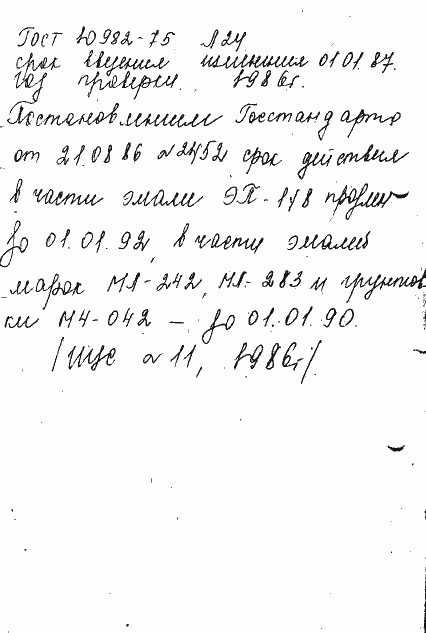 ГОСТ 10982-75 №24
срок введения изменения 01 01. 87.
год проверки 1986г.
Постановлением Госстандарта
от 21.08 86 №2452 срок действия
в части эмали ЭП-148 продлить
до 01.01.92, в части эмалей
марок МЛ-242, МЛ-283 и грунтов
ки МЧ-042 – до 01.01.90.
/ИУС №11, 1986г/